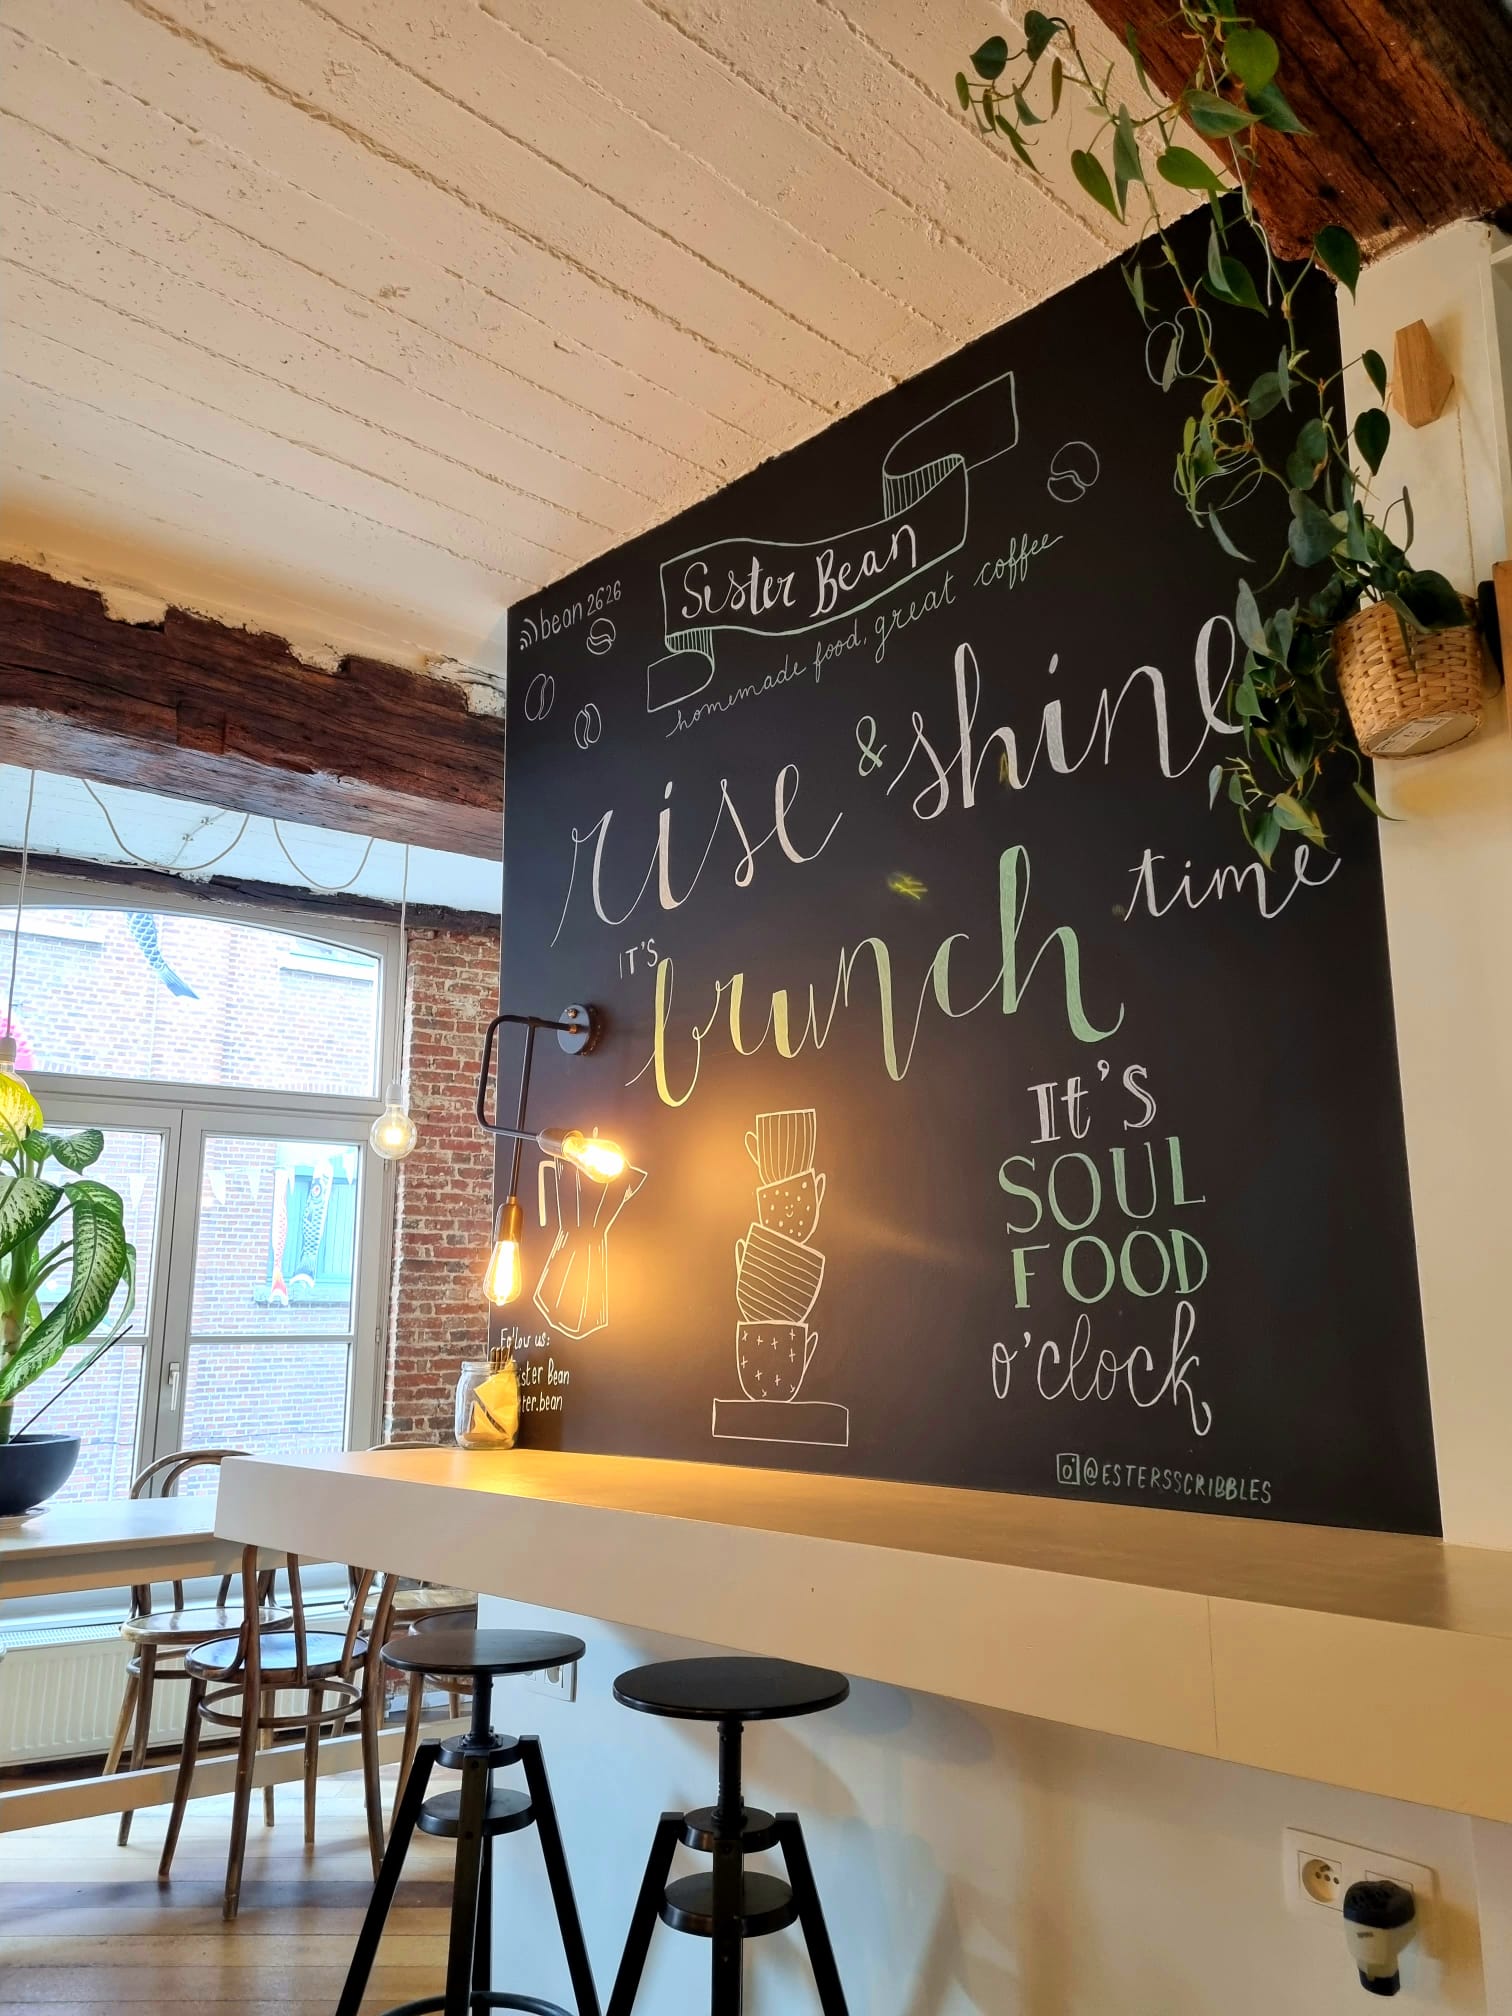 bean2626
Sister Bean
homemade food, great coffee
rise & shine
IT'S
brunch time
It's
SOUL
FOOD
o'clock
Follow us:
Bean
@ESTERSSCRIBBLES